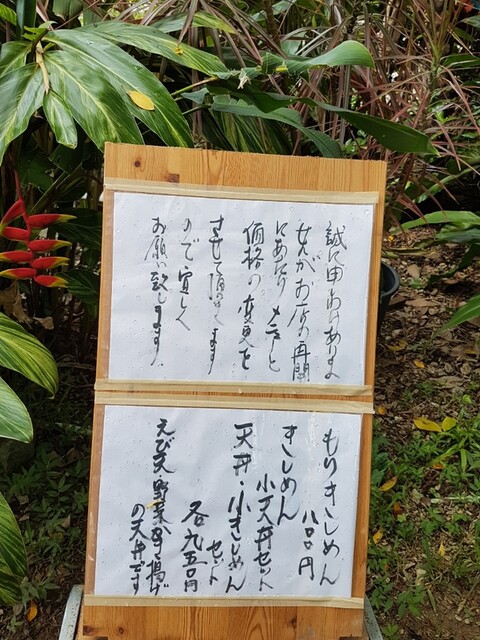 誠に申しわけありま
せんがお店の再開
にあたりメニューと
価格の変更を
させて頂きます
ので宜しく
お願い致します。
もりきしめん
八百円
きしめん
小天丼セット
天丼・小きしめん
セット
各九五〇円
えび天・野菜かき揚げ
の天丼です